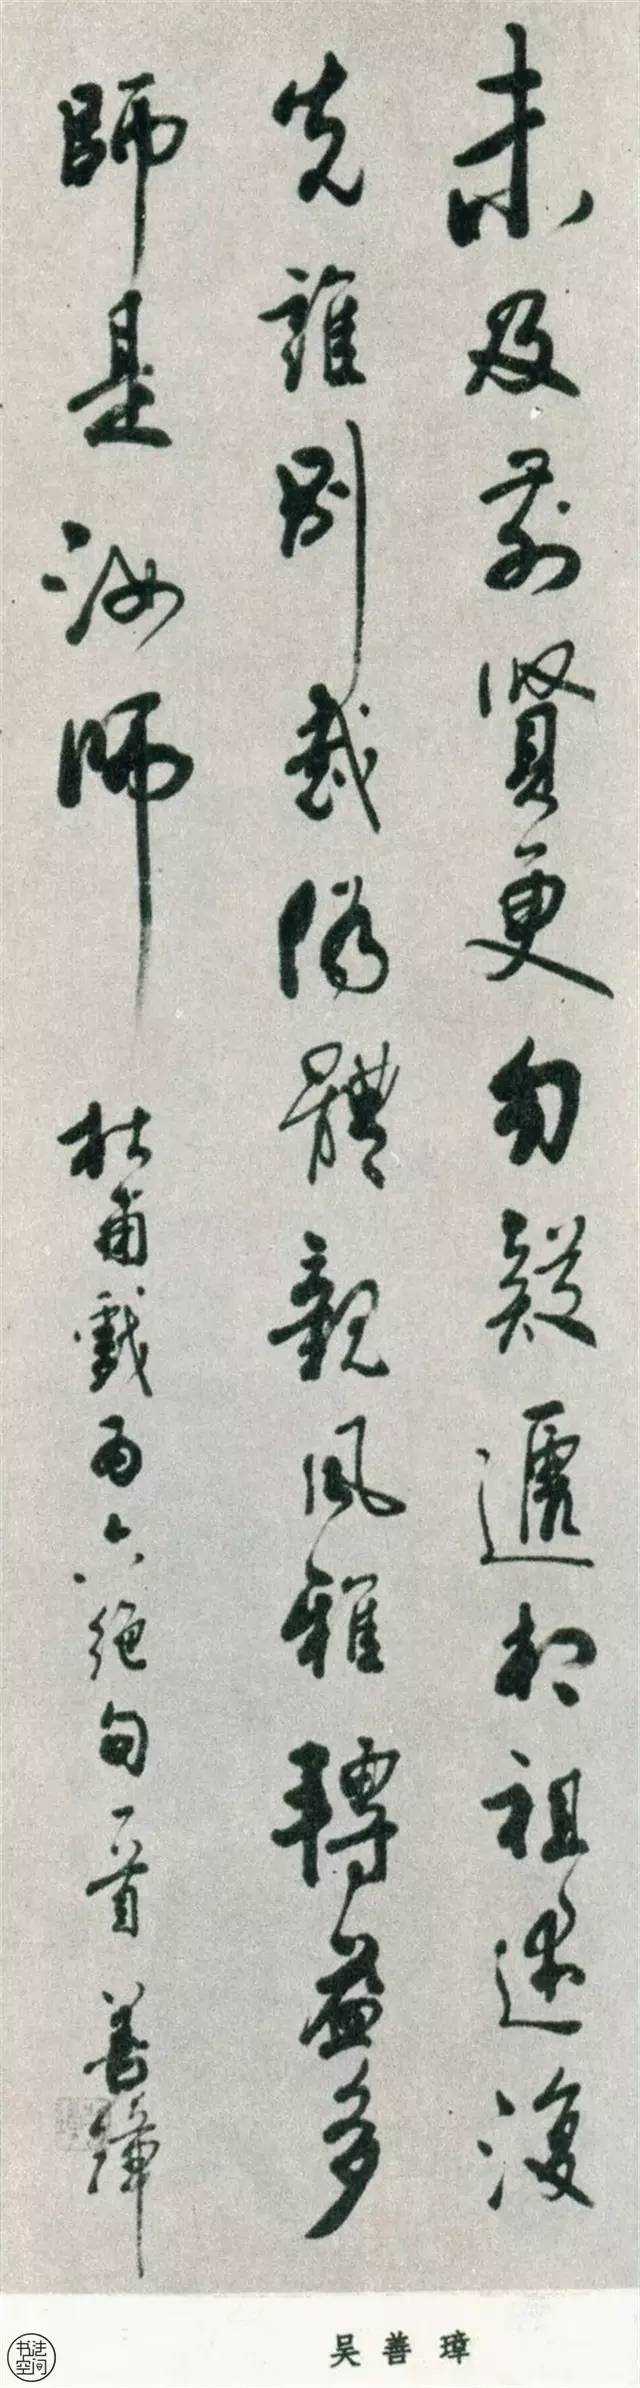 未及前賢更勿疑遞相祖述復
先誰别裁偽體親風雅轉益多
師是汝师
杜甫戲為六絕句一首 善璋
吴善璋
书法空间